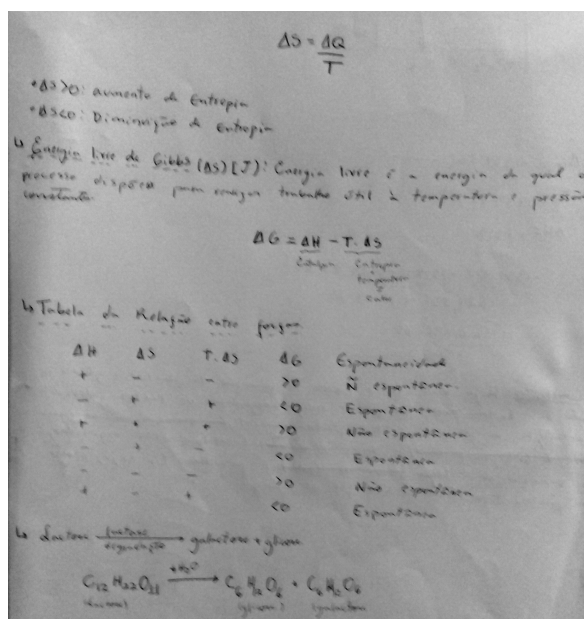 ΔS = ΔQ / T
• ΔS>0: aumento de Entropia
• ΔS<0: Diminuição de Entropia
↳ Energia livre de Gibbs (ΔS) [J]: Energia livre é a energia da qual o
processo dispõe para realizar trabalho útil à temperatura e pressão
constante.
ΔG = ΔH - T. ΔS
Entalpia Entropia
temperatura
↳ Tabela da Relação entre forças
ΔH ΔS T. ΔS ΔG Espontaneidade
+ - - >0 Ñ espontânea.
- + + <0 Espontânea
+ + + >0 Não espontânea
<0 Espontânea
- - >0 Não espontânea
<0 Espontânea
↳ Lactose lactase galactose + glicose
C12 H22O11 +H2O → C6 H12 O6 + C6 H12 O6
(lactose) (glicose) (galactose)